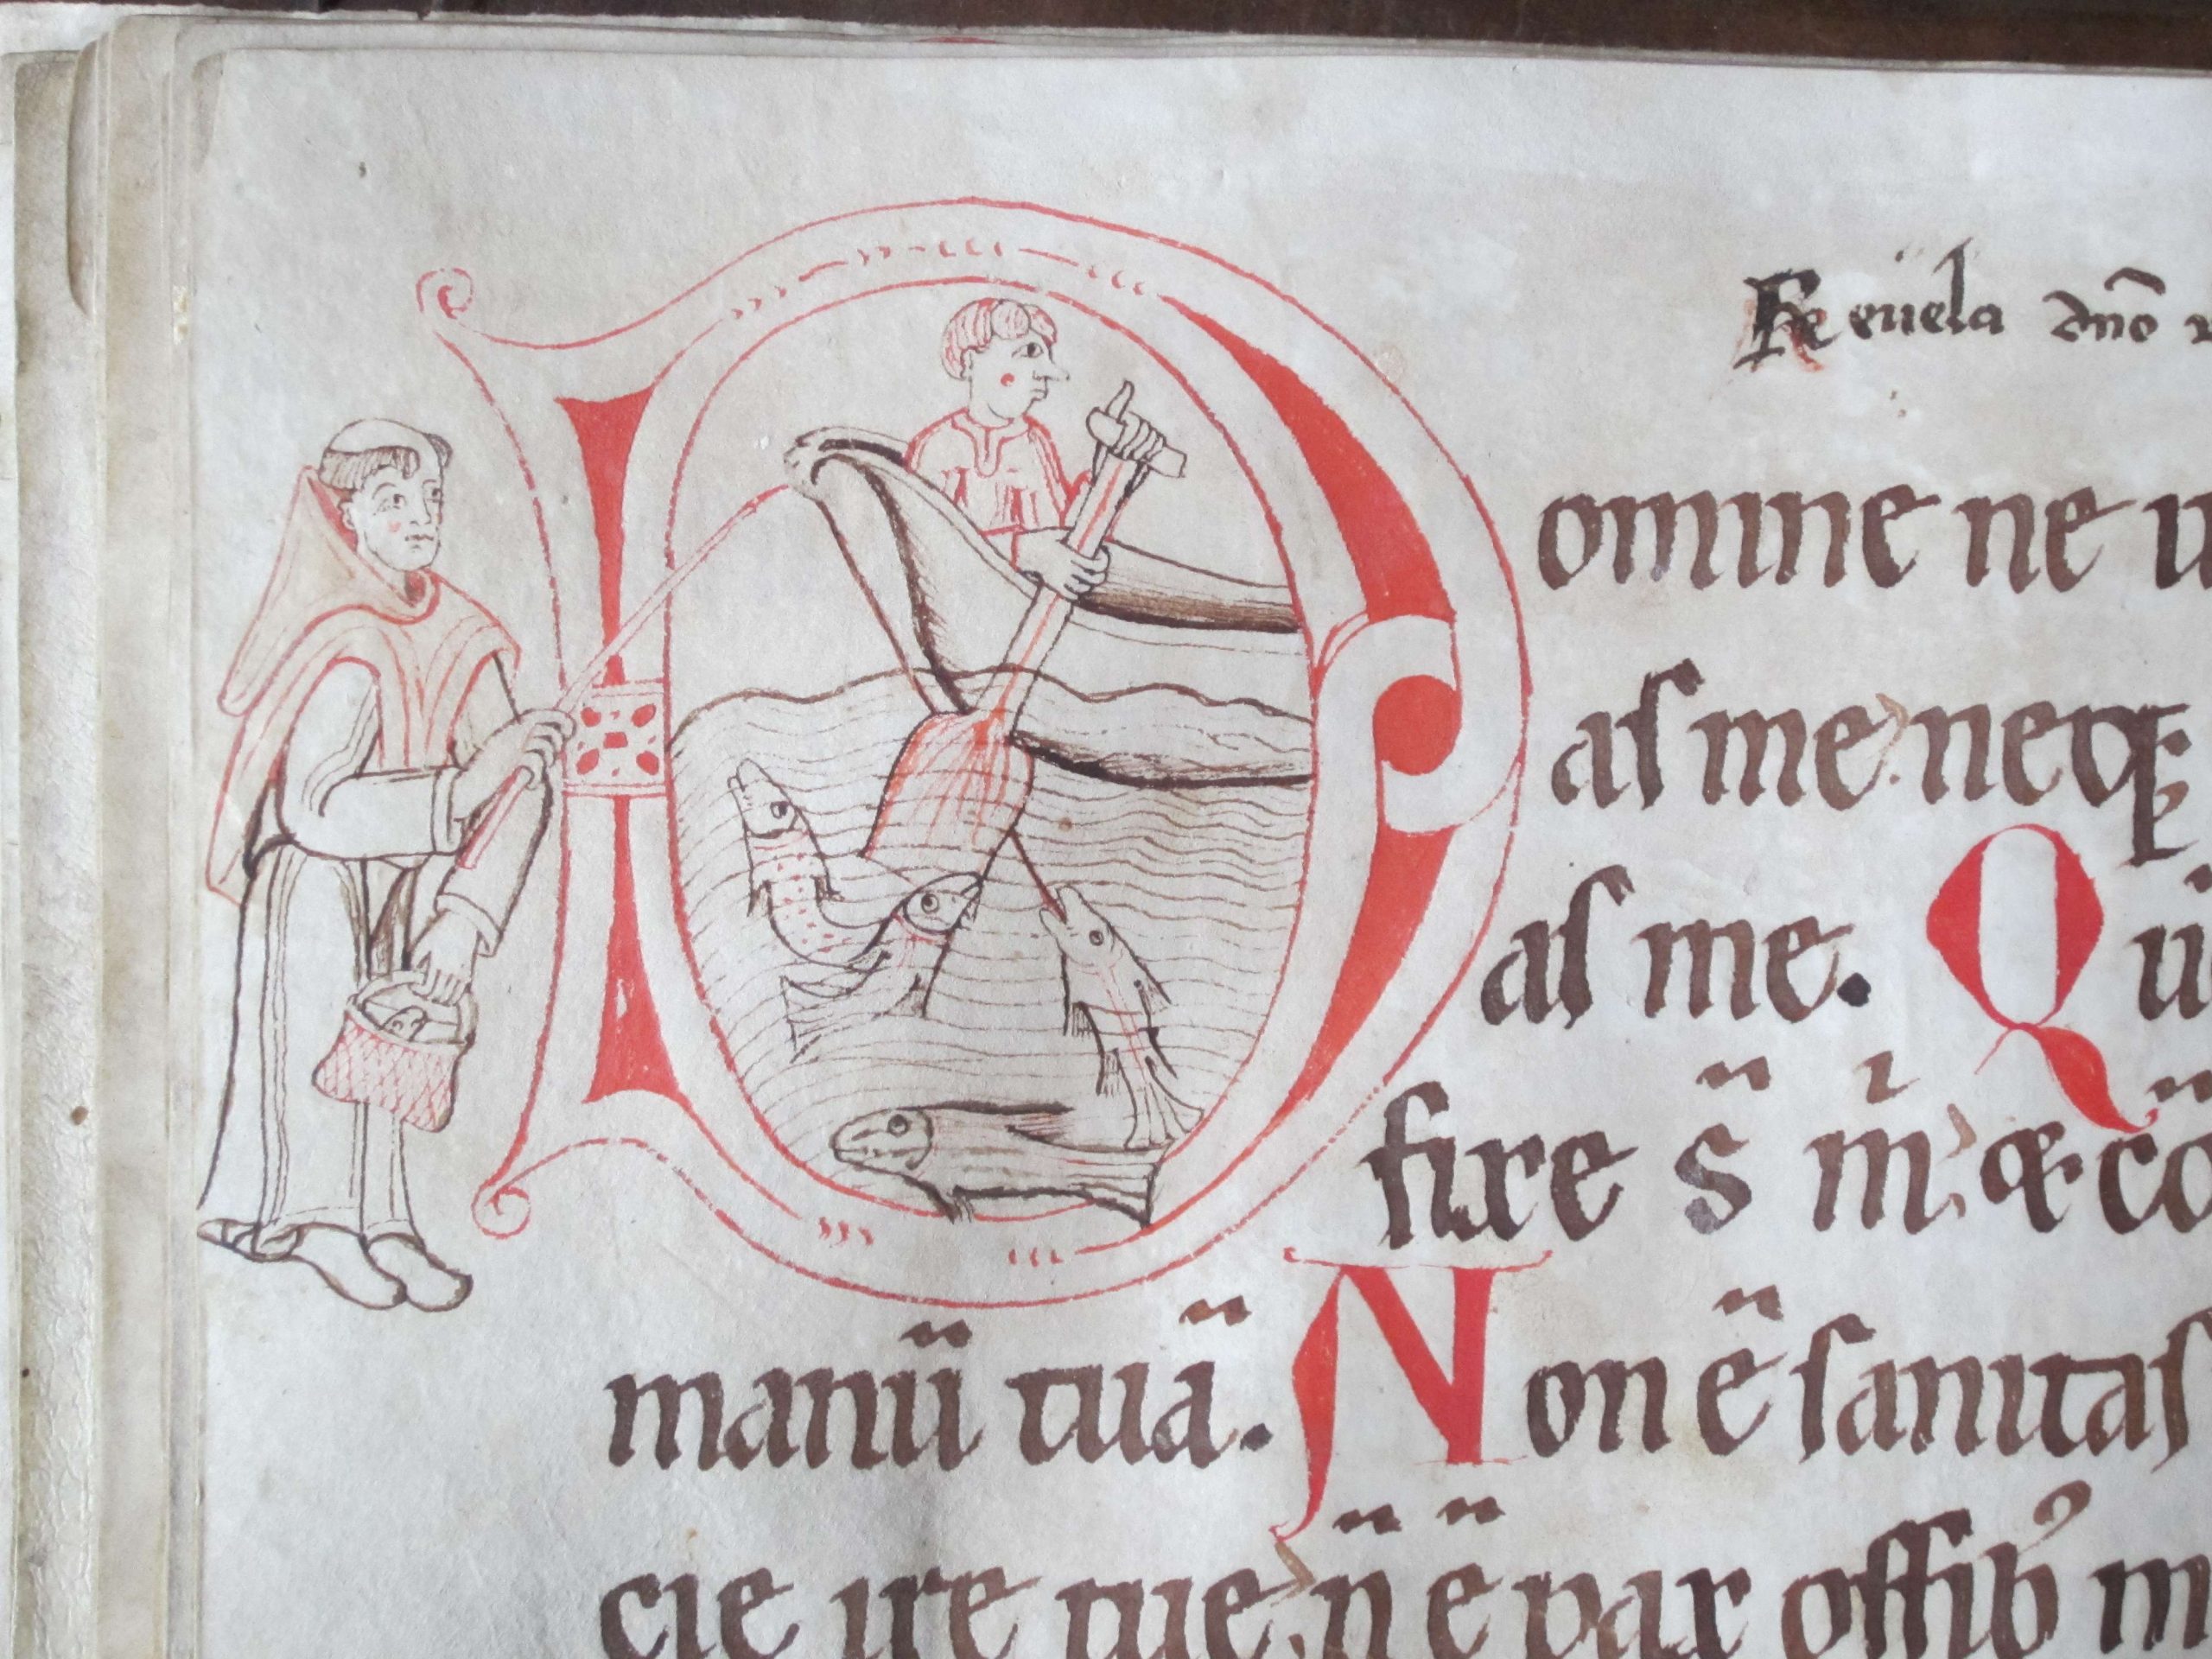 Reuela dnō
Domine ne
as me. neq;
as me. Qu
fixe sт̃ m̃ı & cō
manū tuā. Non ē sanitas
cie ire tue, ñ ē pax ossib⁹ m